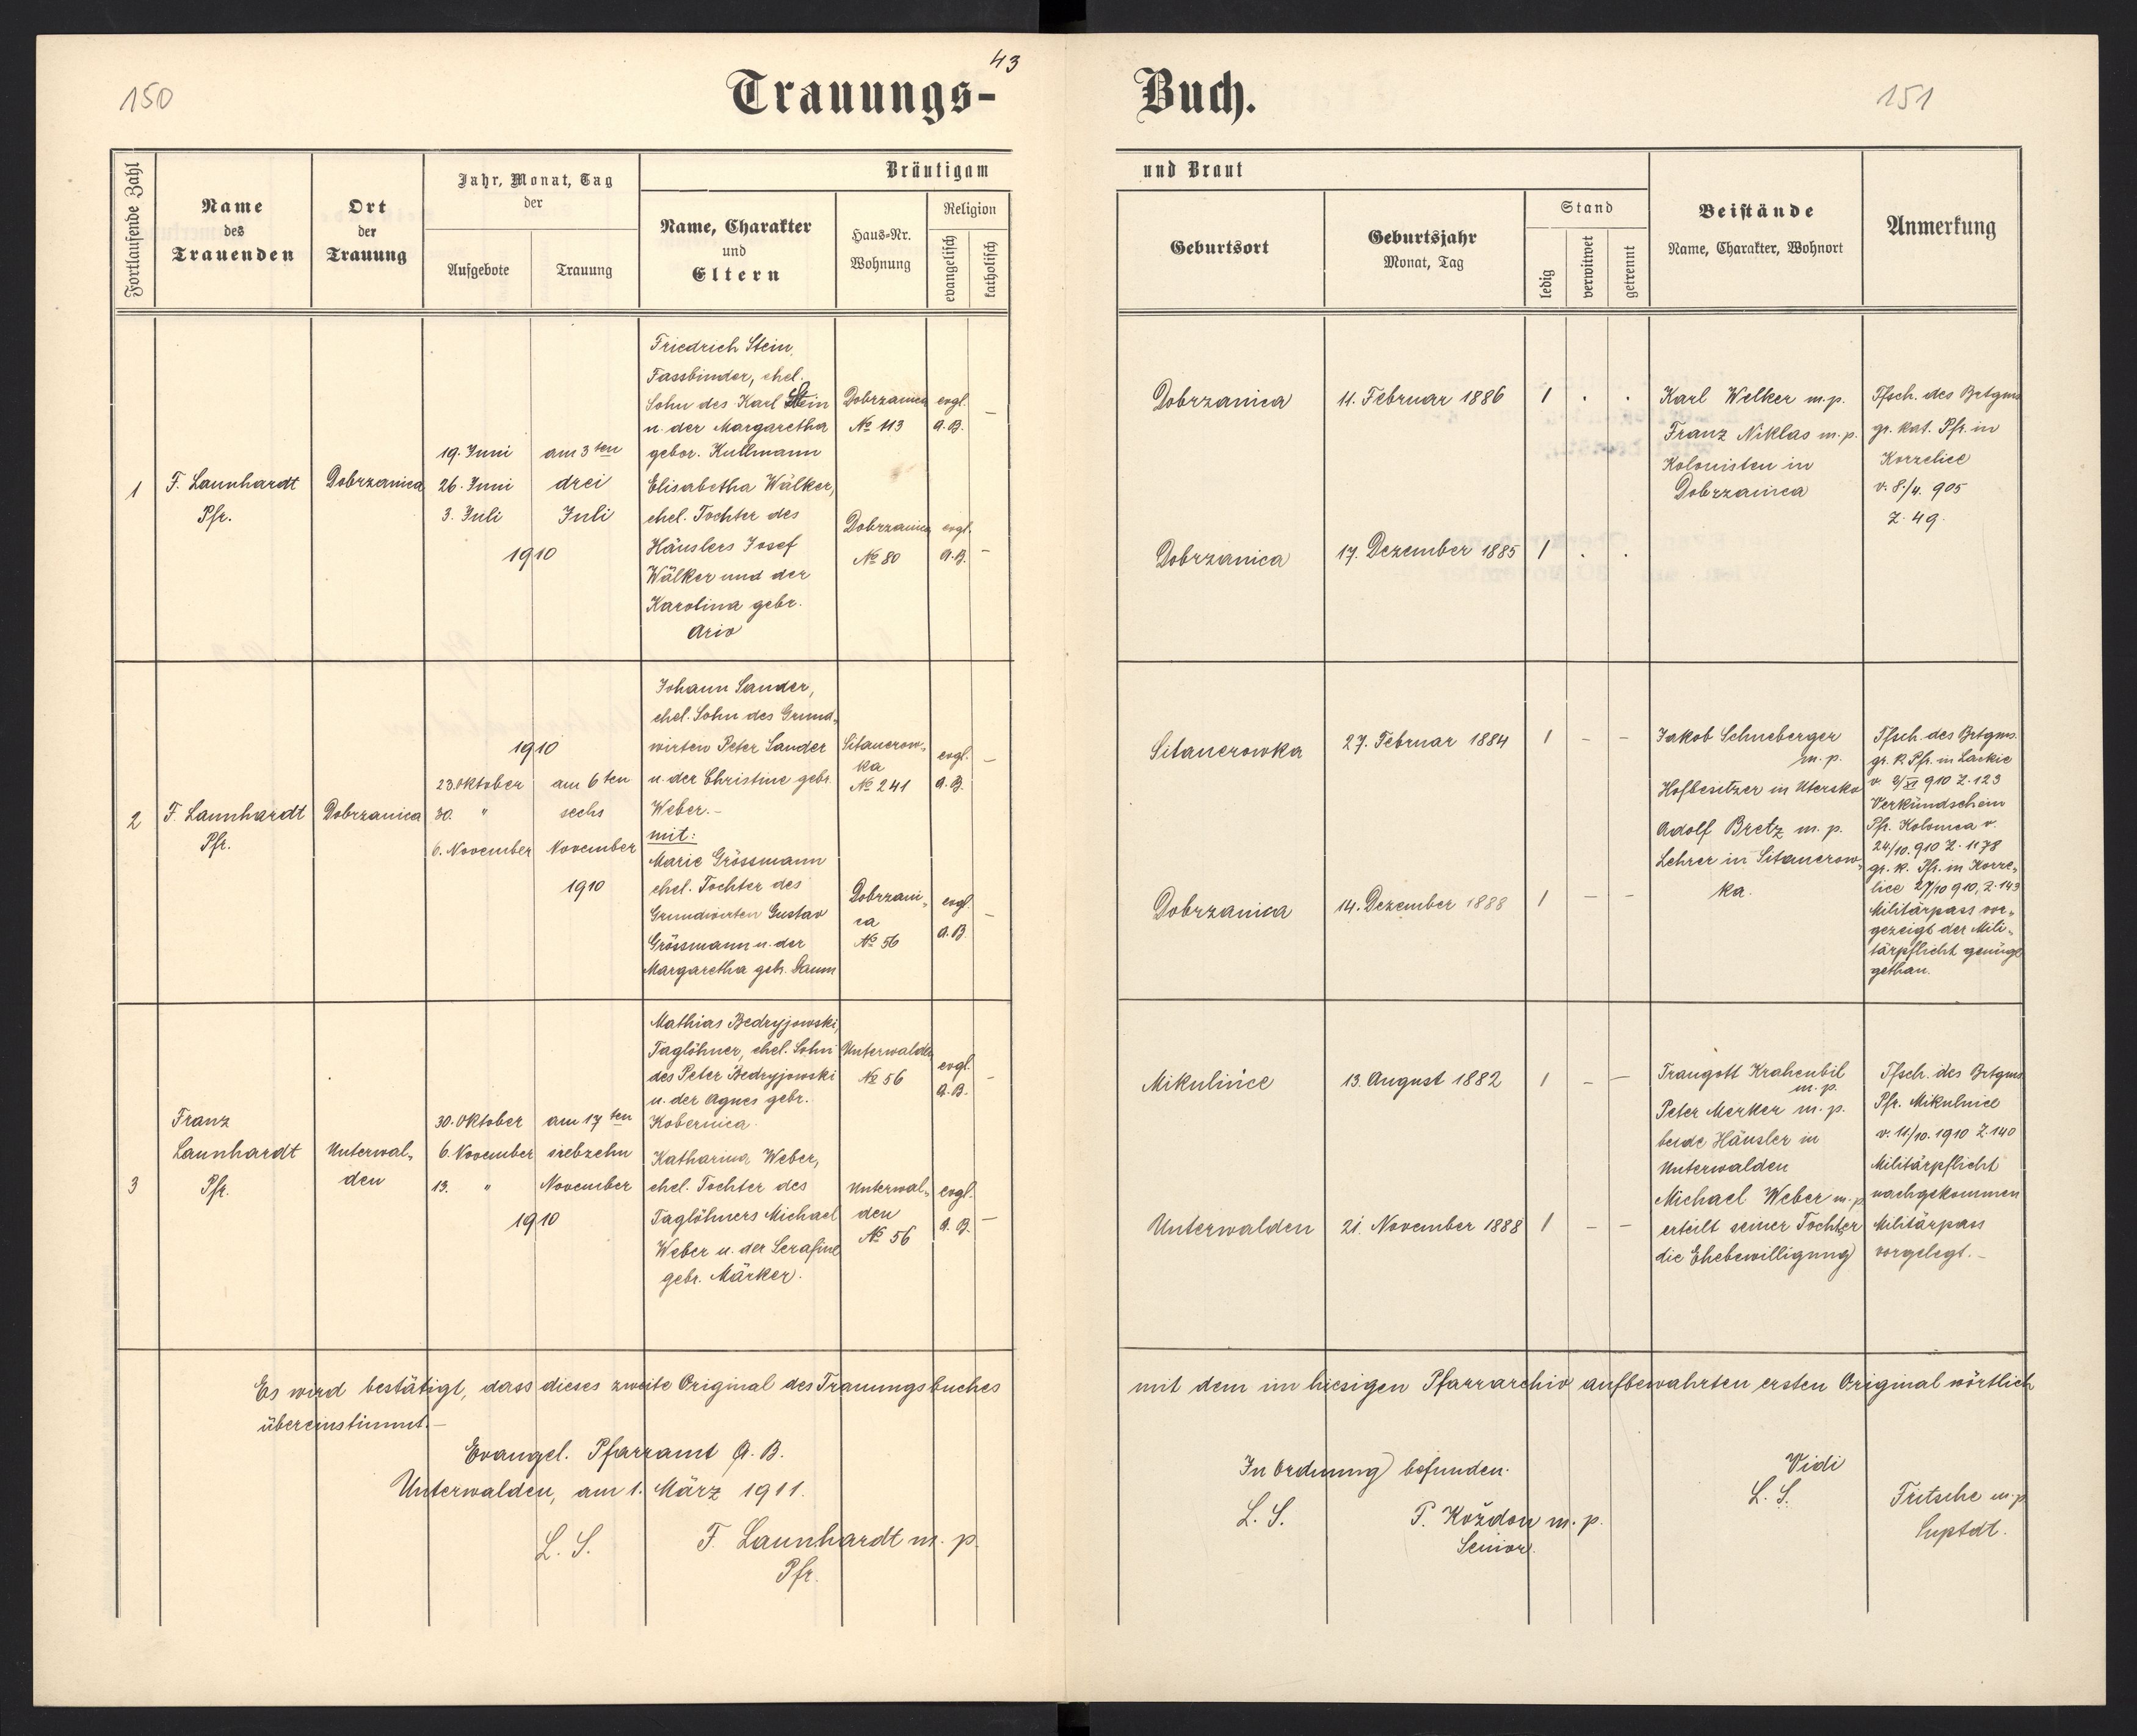 43
150
Trauungs-
Buch.
151
Fortlaufende Zahl
Name
des
Trauenden
Ort
der
Trauung
Jahr, Monat, Tag
der
Aufgebote
Trauung
Bräutigam
Name, Charakter
und
Eltern
Haus-Nr.
Wohnung
Religion
evangelisch
katholisch
und Braut
Geburtsort
Geburtsjahr
Monat, Tag
Stand
ledig
verwitwet
getrennt
Beistände
Name, Charakter, Wohnort
Anmerkung
1
F. Launhardt
Pfr.
Dobrzanica
19. Juni
26. Juni
3. Juli
am 3ten
drei
Juli
1910
Friedrich Stein,
Fassbinder, ehel.
Sohn des Karl Stein
u. der Margaretha
gebor. Kullmann
Elisabetha Wälker,
ehel. Tochter des
Häuslers Josef
Wälker und der
Karolina gebr.
Ariv
Dobrzanica
№ 113
evgl.
A.B.
–
Dobrzanica
№ 80
evgl.
A.B.
–
Dobrzanica
11. Februar 1886
1 . .
Dobrzanica
17. Dezember 1885
1 . .
Karl Welker m.p.
Franz Niklas m.p.
Kolonisten in
Dobrzanica
Tfsch. des Brtgms
gr. kat. Pfr. in
Korzelice
v. 8./4. 905
Z. 49.
2
F. Launhardt
Pfr.
Dobrzanica
1910
23. Oktober
30. "
6. November
am 6ten
sechs
November
1910
Johann Sander,
ehel. Sohn des Grund-
wirten Peter Sander
u. der Christine gebr.
Weber.–
mit:
Marie Grössmann
ehel. Tochter des
Grundwirten Gustav
Grössmann u. der
Margaretha geb. Daum
Sitauerow-
ka
№ 241
evgl.
A.B.
–
Dobrzani-
ca
№ 56
evgl.
A.B.
–
Sitauerowka
27. Februar 1884
1 – –
Dobrzanica
14. Dezember 1888
1 – –
Jakob Schneberger
m.p.
Hofbesitzer in Utersko
Adolf Bretz m.p.
Lehrer in Sitauerow-
ka.
Tfsch. des Brtgms.
gr. k. Pfr. in Łackie
v. 3/XI 910 Z. 123
Verkündschein
Pfr. Kolomea v.
24/10. 910 Z. 1178
gr. k. Pfr. in Korze-
lice 27/10 910, Z. 143
Militärpass vor-
gezeigt der Mili-
tärpflicht genüge
gethan.
3
Franz
Launhardt
Pfr.
Unterwal-
den
30. Oktober
6. November
13. "
am 17ten
siebzehn
November
1910
Mathias Bedryjowski,
Taglöhner, ehel. Sohn
des Peter Bedryjowski
u. der Agnes gebr.
Kobernica.
Katharina Weber,
ehel. Tochter des
Taglöhners Michael
Weber u. der Serafine
gebr. Märker.
Unterwalden
№ 56
evgl.
A.B.
–
Unterwal-
den
№ 56
evgl.
A.B.
–
Mikulińce
13. August 1882
1 – –
Unterwalden
21. November 1888
1 – –
Traugott Krahenbil
m.p.
Peter Merker m.p.
beide Häusler in
Unterwalden
Michael Weber m.p.
erteilt seiner Tochter
die Ehebewilligung
Tfsch. des Brtgms
Pfr. Mikulnice
v. 11./10. 1910 Z. 140
Militärpflicht
nachgekommen
Militärpass
vorgelegt.–
Es wird bestätigt, dass dieses zweite Original des Trauungsbuches mit dem im hiesigen Pfarrarchiv aufbewahrten ersten Original wörtlich
übereinstimmt.–
Evangel. Pfarramt A.B.
Unterwalden, am 1. März 1911.
L. S.
F. Launhardt m. p.
Pfr.
In Ordnung befunden.
L. S.
P. Koždon m. p.
Senior.
Vidi
L. S.
Fritsche m.p.
Suptdt.